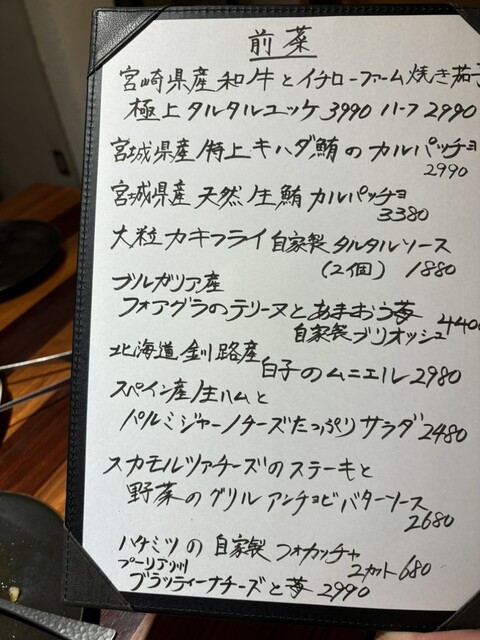 前菜
宮崎県産和牛とイチローファーム焼き茄子
極上タルタルユッケ 3990 ハーフ 2990
宮城県産特上キハダ鮪のカルパッチョ
2990
宮城県産 天然生鮪カルパッチョ
3380
大粒カキフライ自家製タルタルソース
(2個) 1880
ブルガリア産
フォアグラのテリーヌとあまおう苺
自家製ブリオッシュ 4400
北海道釧路産
白子のムニエル 2980
スペイン産生ハムと
パルミジャーノチーズたっぷりサラダ 2480
スカモルツァチーズのステーキと
野菜のグリル アンチョビバターソース
2680
ハチミツの自家製フォカッチャ
2カット 680
プーリア州
ブラッティーナチーズと苺 2990